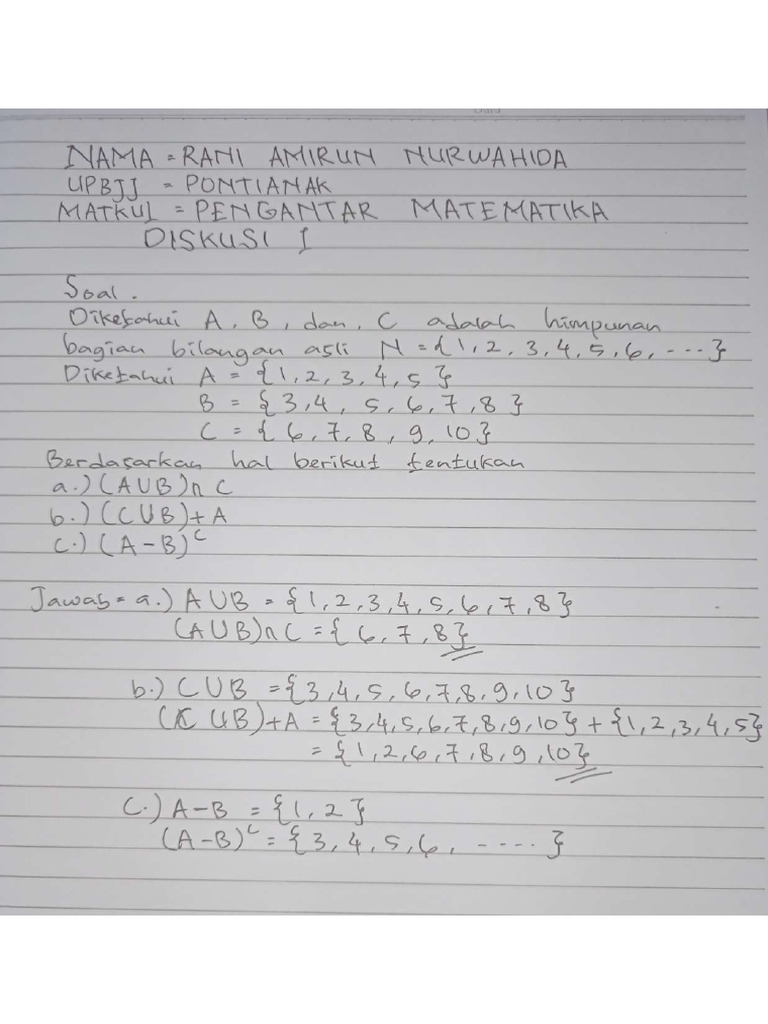 NAMA = RANI AMIRUN NURWAHIDA
UPBJJ = PONTIANAK
MATKUL = PENGANTAR MATEMATIKA
DISKUSI 1
Soal.
Diketahui A, B, dan, C adalah himpunan
bagian bilangan asli N = {1, 2, 3, 4, 5, 6, ---}
Diketahui A = {1, 2, 3, 4, 5}
B = {3, 4, 5, 6, 7, 8}
C = {6, 7, 8, 9, 10}
Berdasarkan hal berikut tentukan
a.) (A∪B)∩ C
b.) (C∪B)+ A
c.) (A-B)ᶜ
Jawab = a.) A∪B = {1, 2, 3, 4, 5, 6, 7, 8}
(A∪B)∩C = {6, 7, 8}
b.) C∪B = {3, 4, 5, 6, 7, 8, 9, 10}
(C∪B)+A = {3, 4, 5, 6, 7, 8, 9, 10} + {1, 2, 3, 4, 5}
= {1, 2, 6, 7, 8, 9, 10}
C.) A-B = {1, 2}
(A-B)ᶜ = {3, 4, 5, 6, -----}